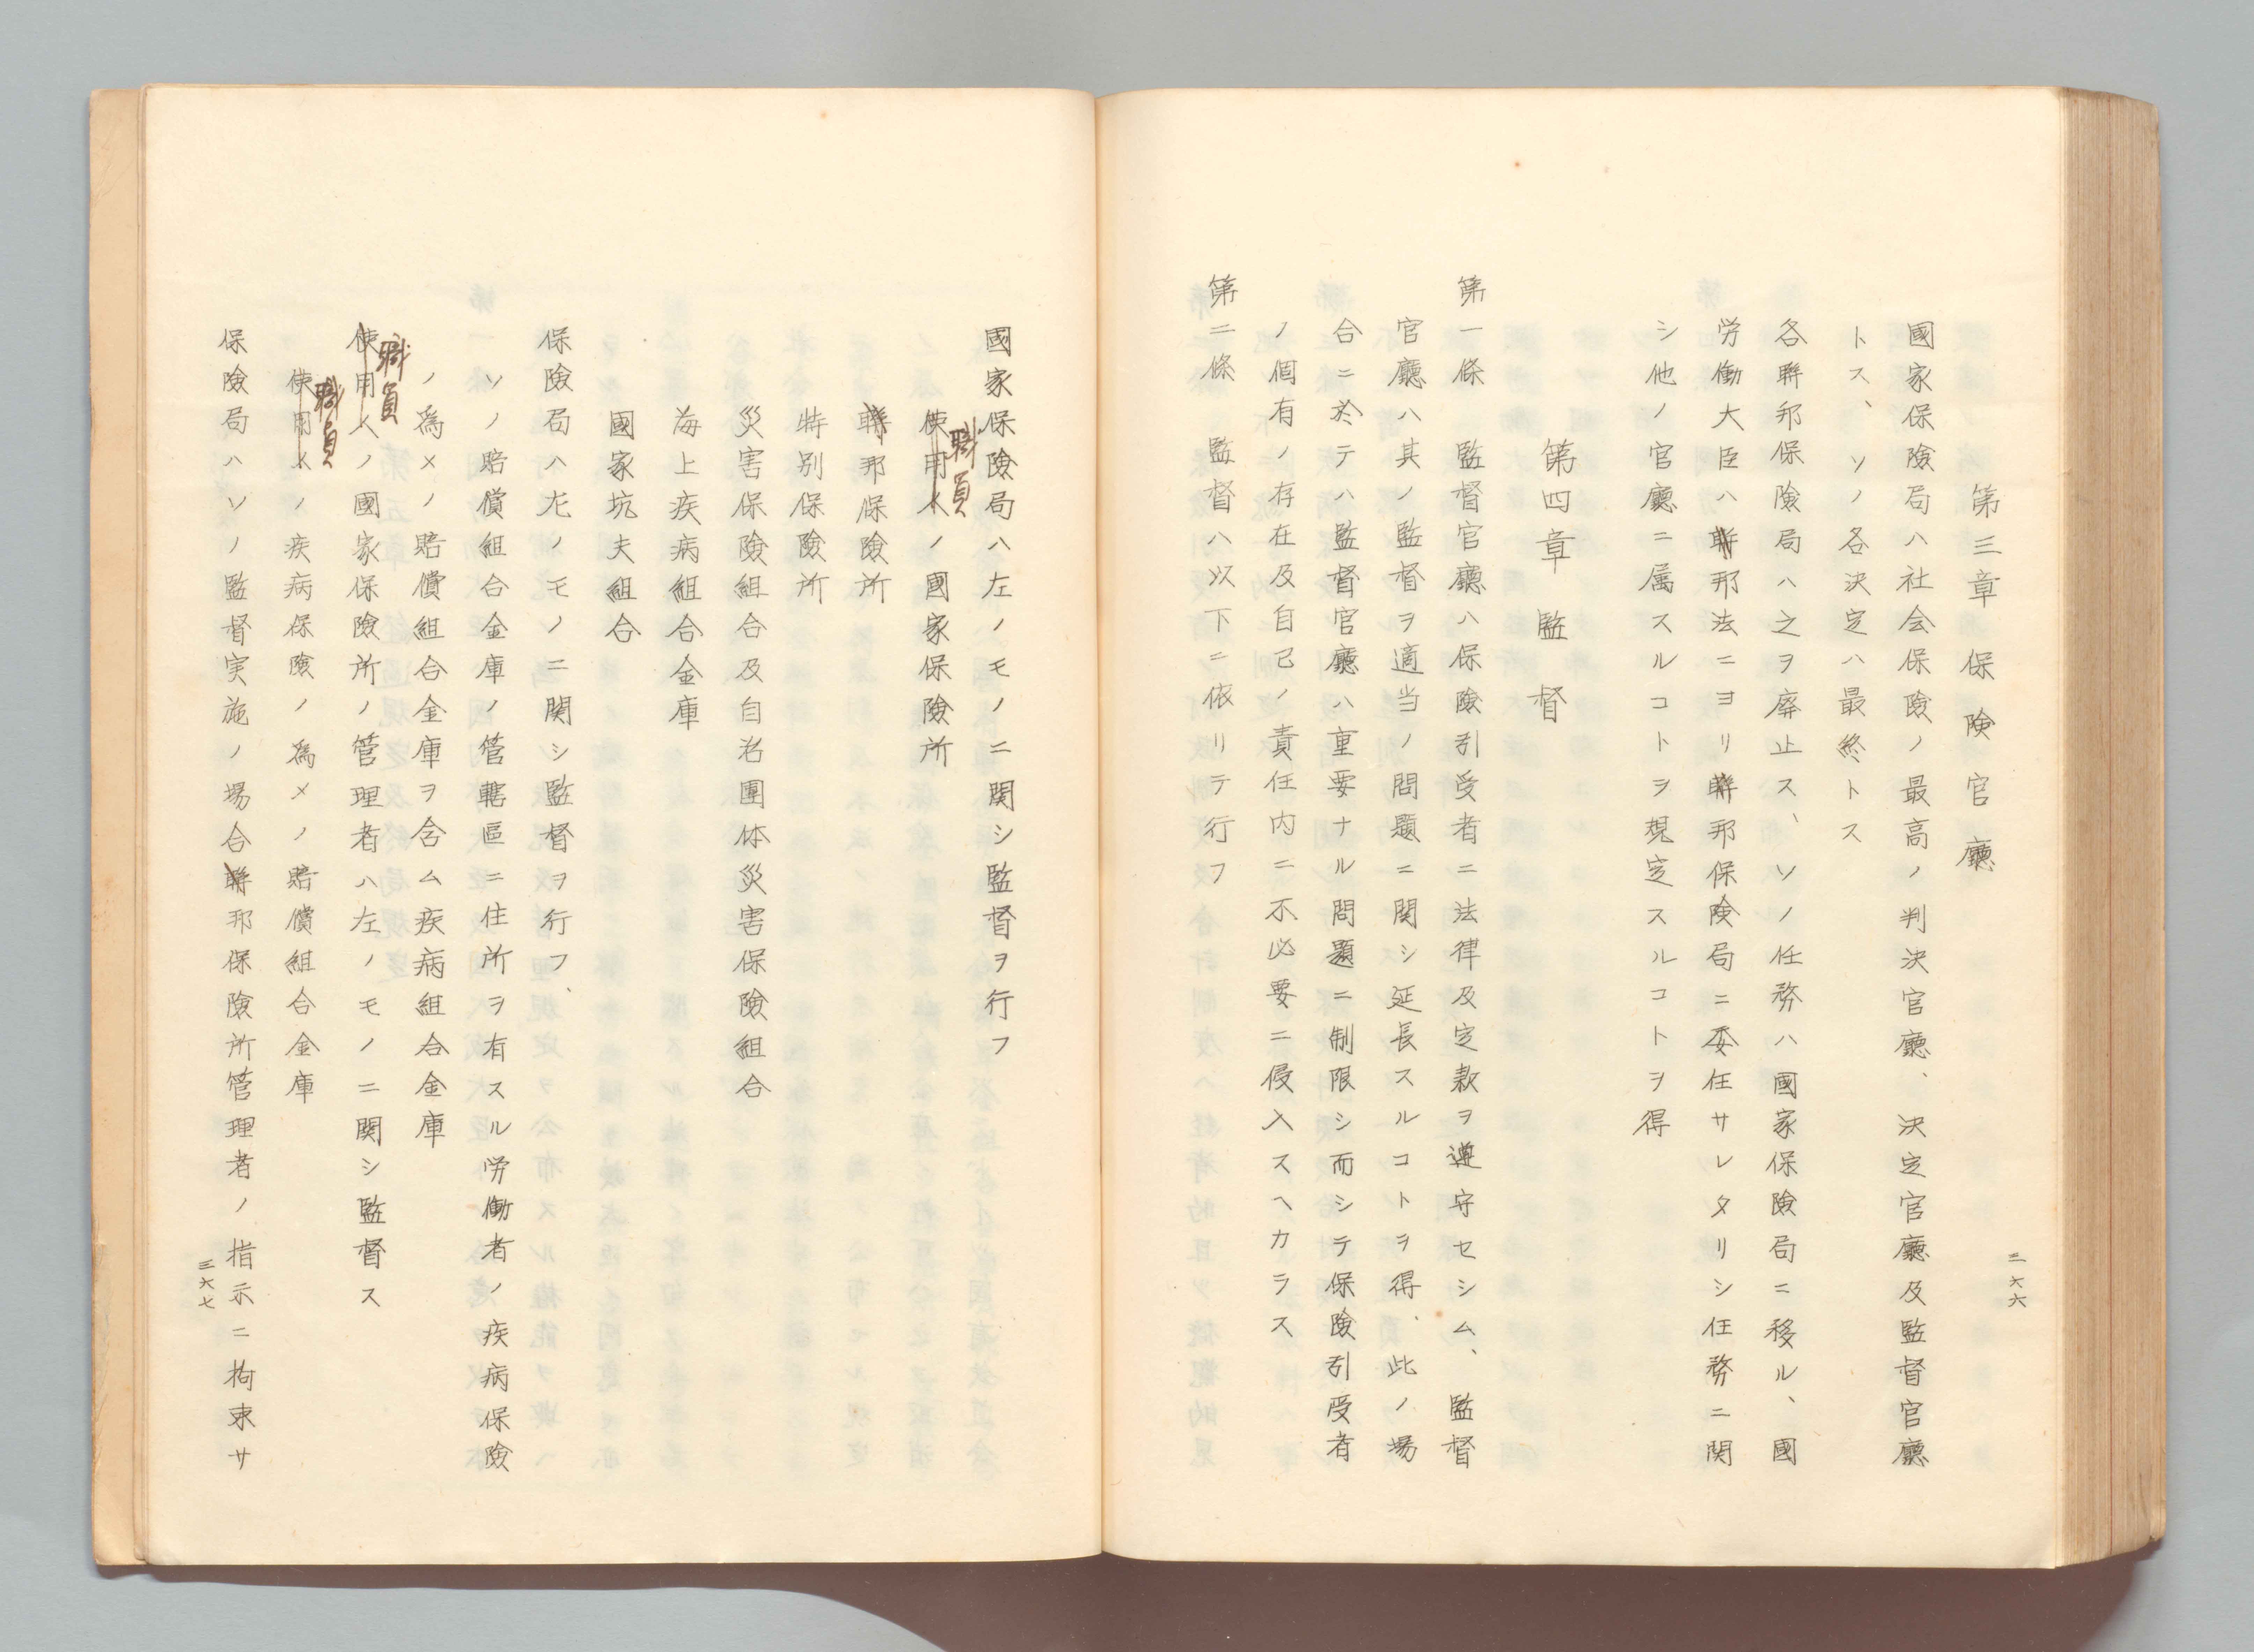 第三章 保険官廳
國家保険局ハ社会保険ノ最高ノ判決官廳、決定官廳及監督官廳
トス、ソノ各決定ハ最終トス
各聯邦保険局ハ之ヲ廃止ス、ソノ任務ハ國家保険局ニ移ル、國
労働大臣ハ聯邦法ニヨリ聯邦保険局ニ委任サレタリシ任務ニ関
シ他ノ官廳ニ属スルコトヲ規定スルコトヲ得
第四章 監督
第一條 監督官廳ハ保険引受者ニ法律及定款ヲ遵守セシム、監督
官廳ハ其ノ監督ヲ適当ノ問題ニ関シ延長スルコトヲ得、此ノ場
合ニ於テハ監督官廳ハ重要ナル問題ニ制限シ而シテ保険引受者
ノ個有ノ存在及自己ノ責任内ニ不必要ニ侵入スヘカラス
第二條 監督ハ以下ニ依リテ行フ
二六六
國家保険局ハ左ノモノニ関シ監督ヲ行フ
職員
使用人ノ國家保険所
聯邦保険所
特別保険所
災害保険組合及自治團体災害保険組合
海上疾病組合金庫
國家坑夫組合
保険局ハ左ノモノニ関シ監督ヲ行フ、
ソノ賠償組合金庫ノ管轄區ニ住所ヲ有スル労働者ノ疾病保険
ノ為メノ賠償組合金庫ヲ含ム疾病組合金庫
職員
使用人ノ國家保険所ノ管理者ハ左ノモノニ関シ監督ス
職員
使用人ノ疾病保険ノ為メノ賠償組合金庫
保険局ハソノ監督実施ノ場合聯邦保険所管理者ノ指示ニ拘束サ
三六七